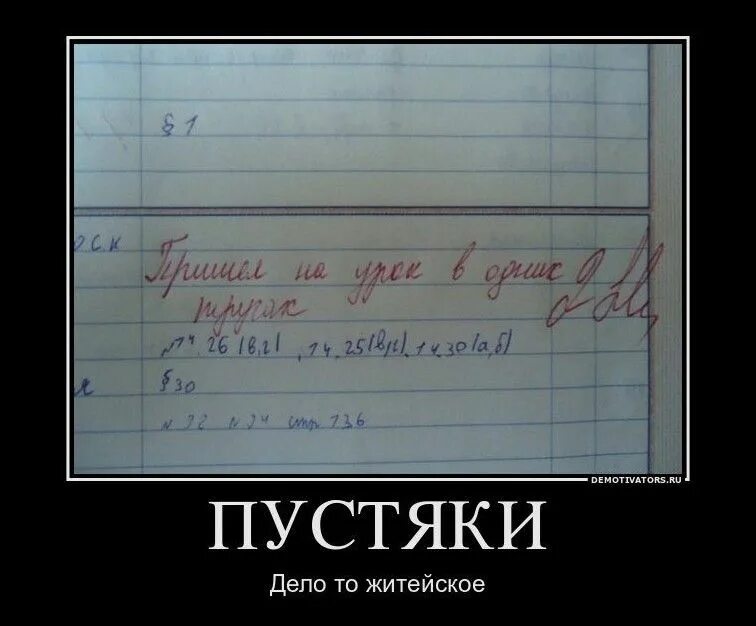 § 1
о.с.к
Пришел на урок в одних 2
трусах
№14.26 (в,г), 14.25(в,г), 14.30(а,б)
§30
стр. 136
DEMOTIVATORS.RU
ПУСТЯКИ
Дело то житейское